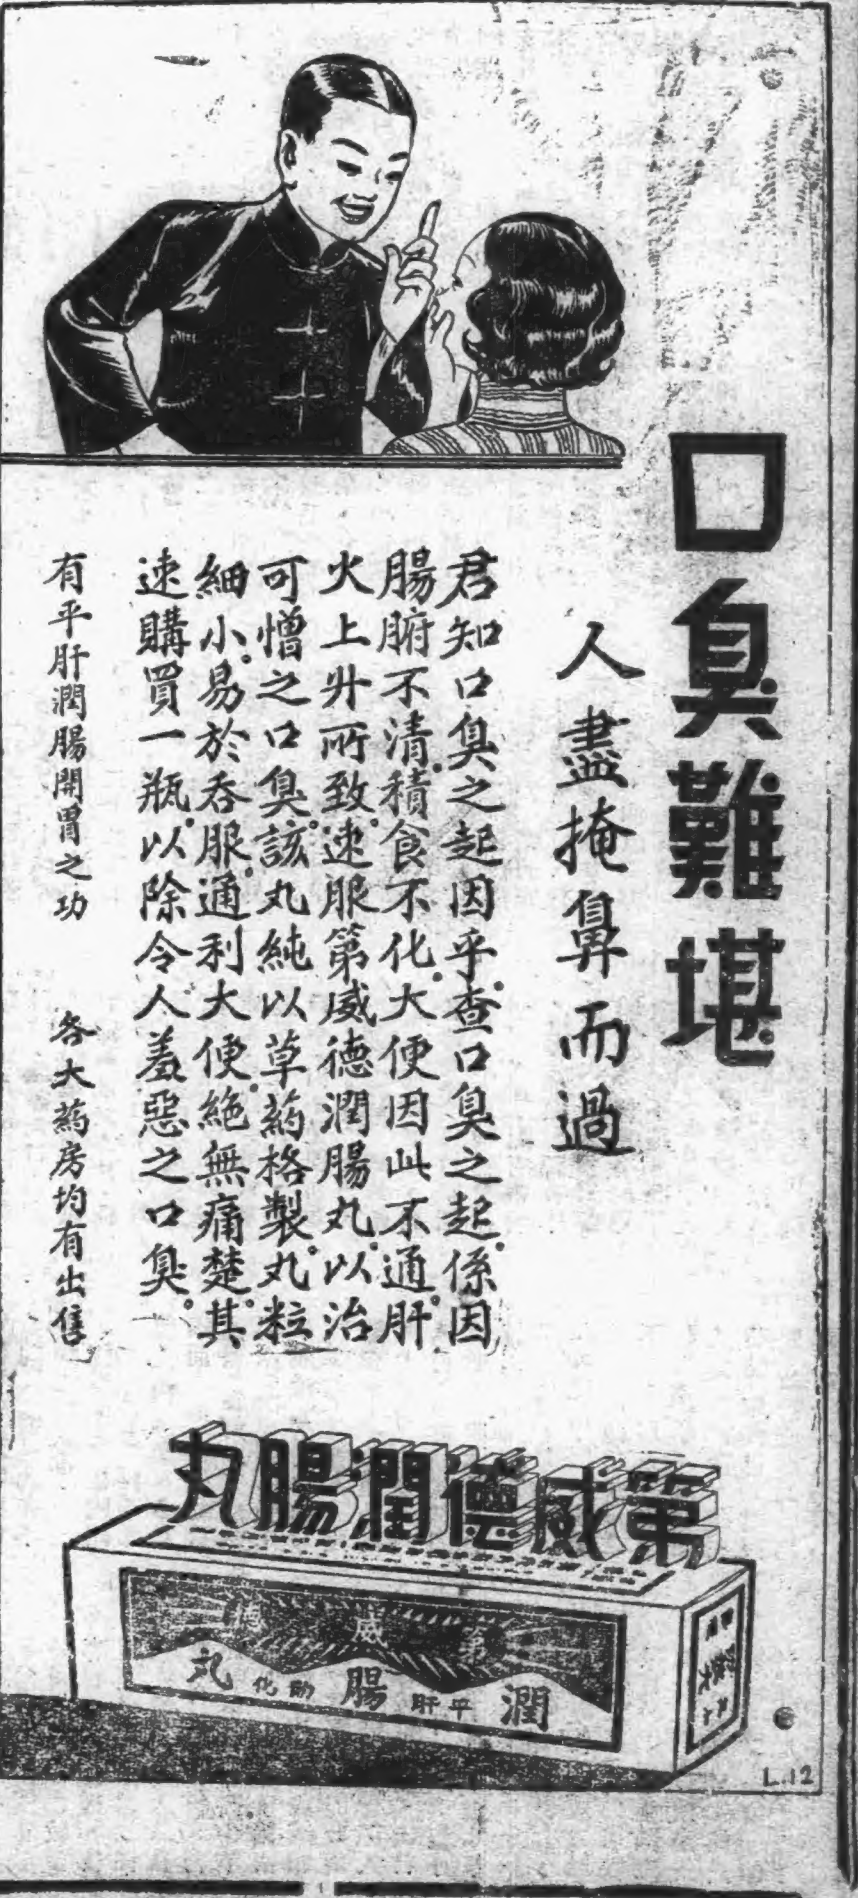 口臭難堪
人盡掩鼻而過
君知口臭之起因乎。查口臭之起。係因
腸腑不清。積食不化。大便因此不通。肝
火上升所致。速服第威德潤腸丸。以治
可憎之口臭。該丸純以草葯格製。丸粒
細小。易於吞服。通利大便。絶無痛楚。其
速購買一瓶。以除令人羞惡之口臭。
有平肝潤腸開胃之功
各大葯房均有出售
第威德潤腸丸
第威德
潤平肝腸助化丸
L.12